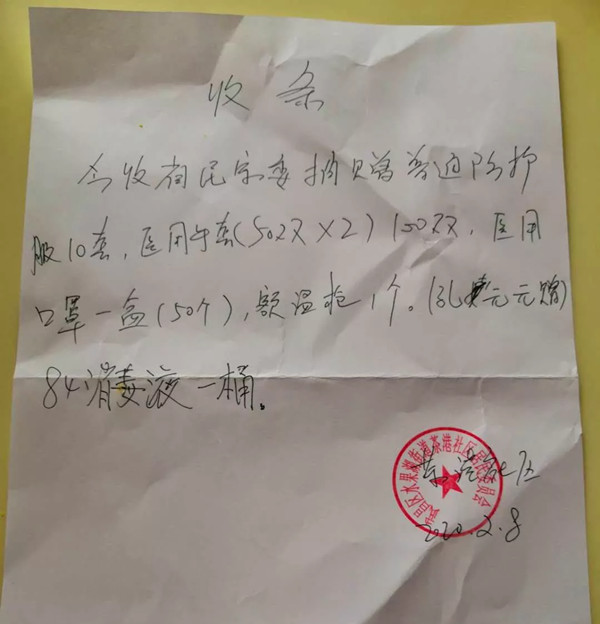 收条
今收省民宗委捐赠普通防护
服10套,医用手套(50双×2)100双,医用
口罩一盒(50个),额温枪1个。(孔元元赠)
84消毒液一桶。
茶港社区
2020.2.8
武昌区水果湖街道茶港社区居民委员会